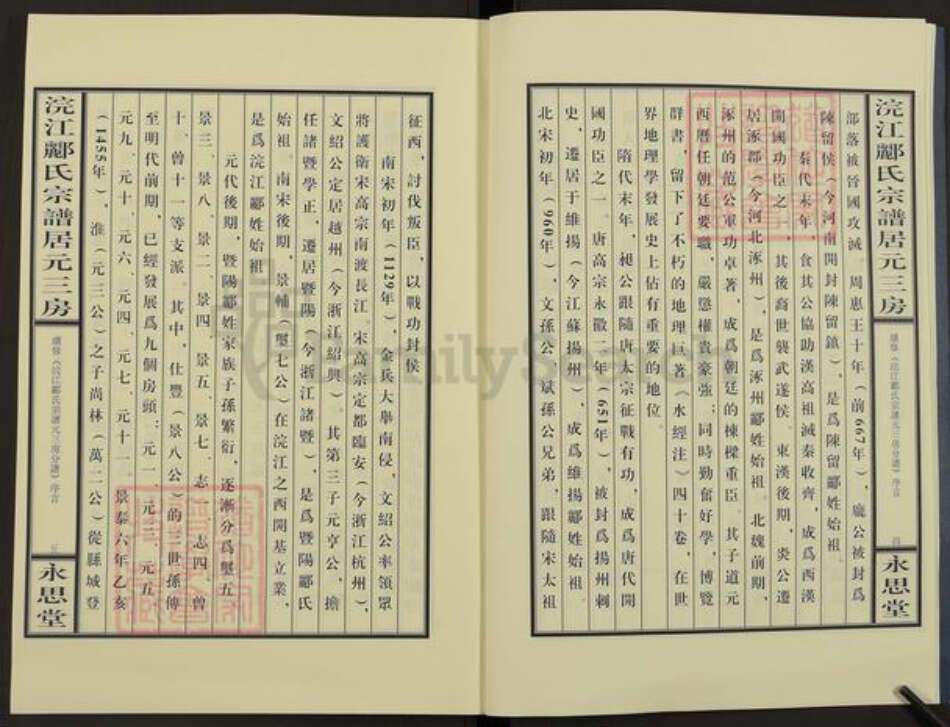 浣江酈氏宗譜居元三房
續修《浣江酈氏宗譜元三房分譜》序言
四
永思堂
部落被晉國攻滅。周惠王十年（前667年），龐公被封爲
陳留侯（今河南開封陳留鎮），是爲陳留酈姓始祖。
秦代末年，食其公協助漢高祖滅秦收齊，成爲西漢
開國功臣之一，其後裔世襲武遂侯。東漢後期，炎公遷
居涿郡（今河北涿州），是爲涿州酈姓始祖。北魏前期，
涿州的范公軍功卓著，成爲朝廷的棟樑重臣。其子道元
西曆任朝廷要職，嚴懲權貴豪強；同時勤奮好學，博覽
群書，留下了不朽的地理巨著《水經注》四十卷，在世
界地理學發展史上佔有重要的地位。
隋代末年，昶公跟隨唐太宗征戰有功，成爲唐代開
國功臣之一。唐高宗永徽二年（651年），被封爲揚州刺
史，遷居于維揚（今江蘇揚州），成爲維揚酈姓始祖。
北宋初年（960年），文孫公、斌孫公兄弟，跟隨宋太祖
征西，討伐叛臣，以戰功封侯。
南宋初年（1129年），金兵大舉南侵，文紹公率領眾
將護衛宋高宗南渡長江。宋高宗定都臨安（今浙江杭州），
文紹公定居越州（今浙江紹興）。其第三子元亨公，擔
任諸暨學正，遷居暨陽（今浙江諸暨），是爲暨陽酈氏
始祖。南宋後期，景輔（壐七公）在浣江之西開基立業，
是爲浣江酈姓始祖。
元代後期，暨陽酈姓家族子孫繁衍，逐漸分爲壐五、
景三、景八、景二、景四、景五、景七、志一、志四、曾
十、曾十一等支派。其中，仕豐（景八公）的三世孫傳
至明代前期，已經發展爲九個房頭：元一、元三、元五、
元九、元十、元六、元四、元七、元十一。景泰六年乙亥
（1455年），淮（元三公）之子尚林（萬二公）從縣城登
浣江酈氏宗譜居元三房
續修《浣江酈氏宗譜元三房分譜》序言
五
永思堂
FamilySearch